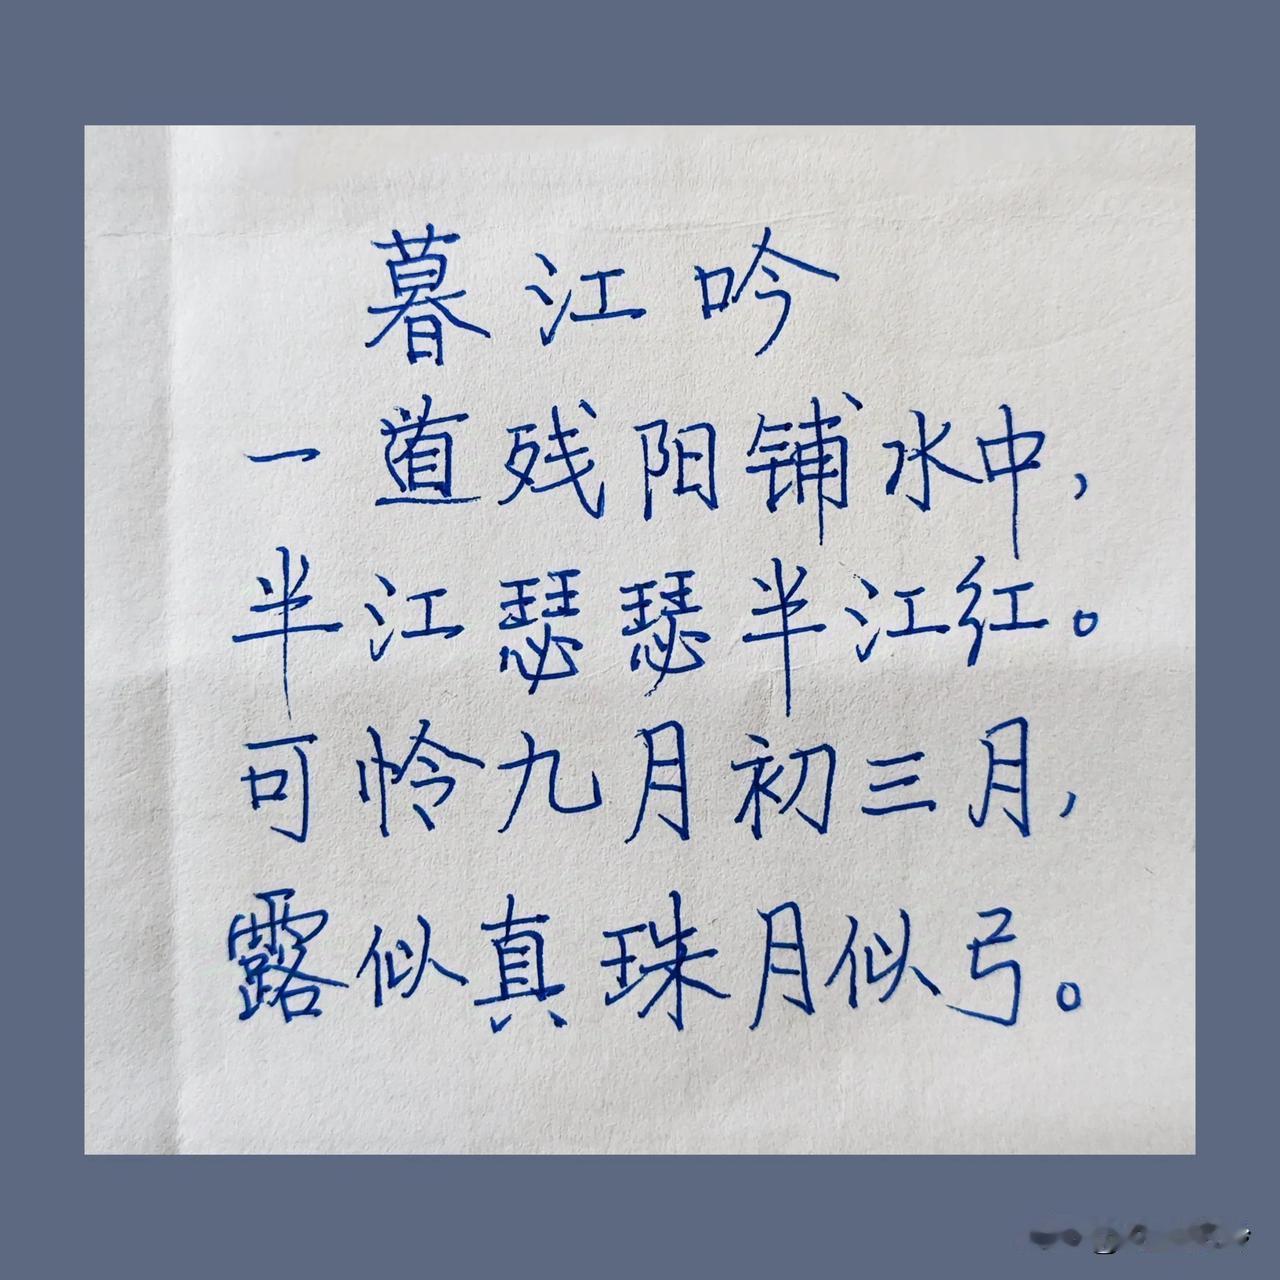 暮江吟
一道残阳铺水中，
半江瑟瑟半江红。
可怜九月初三月，
露似真珠月似弓。